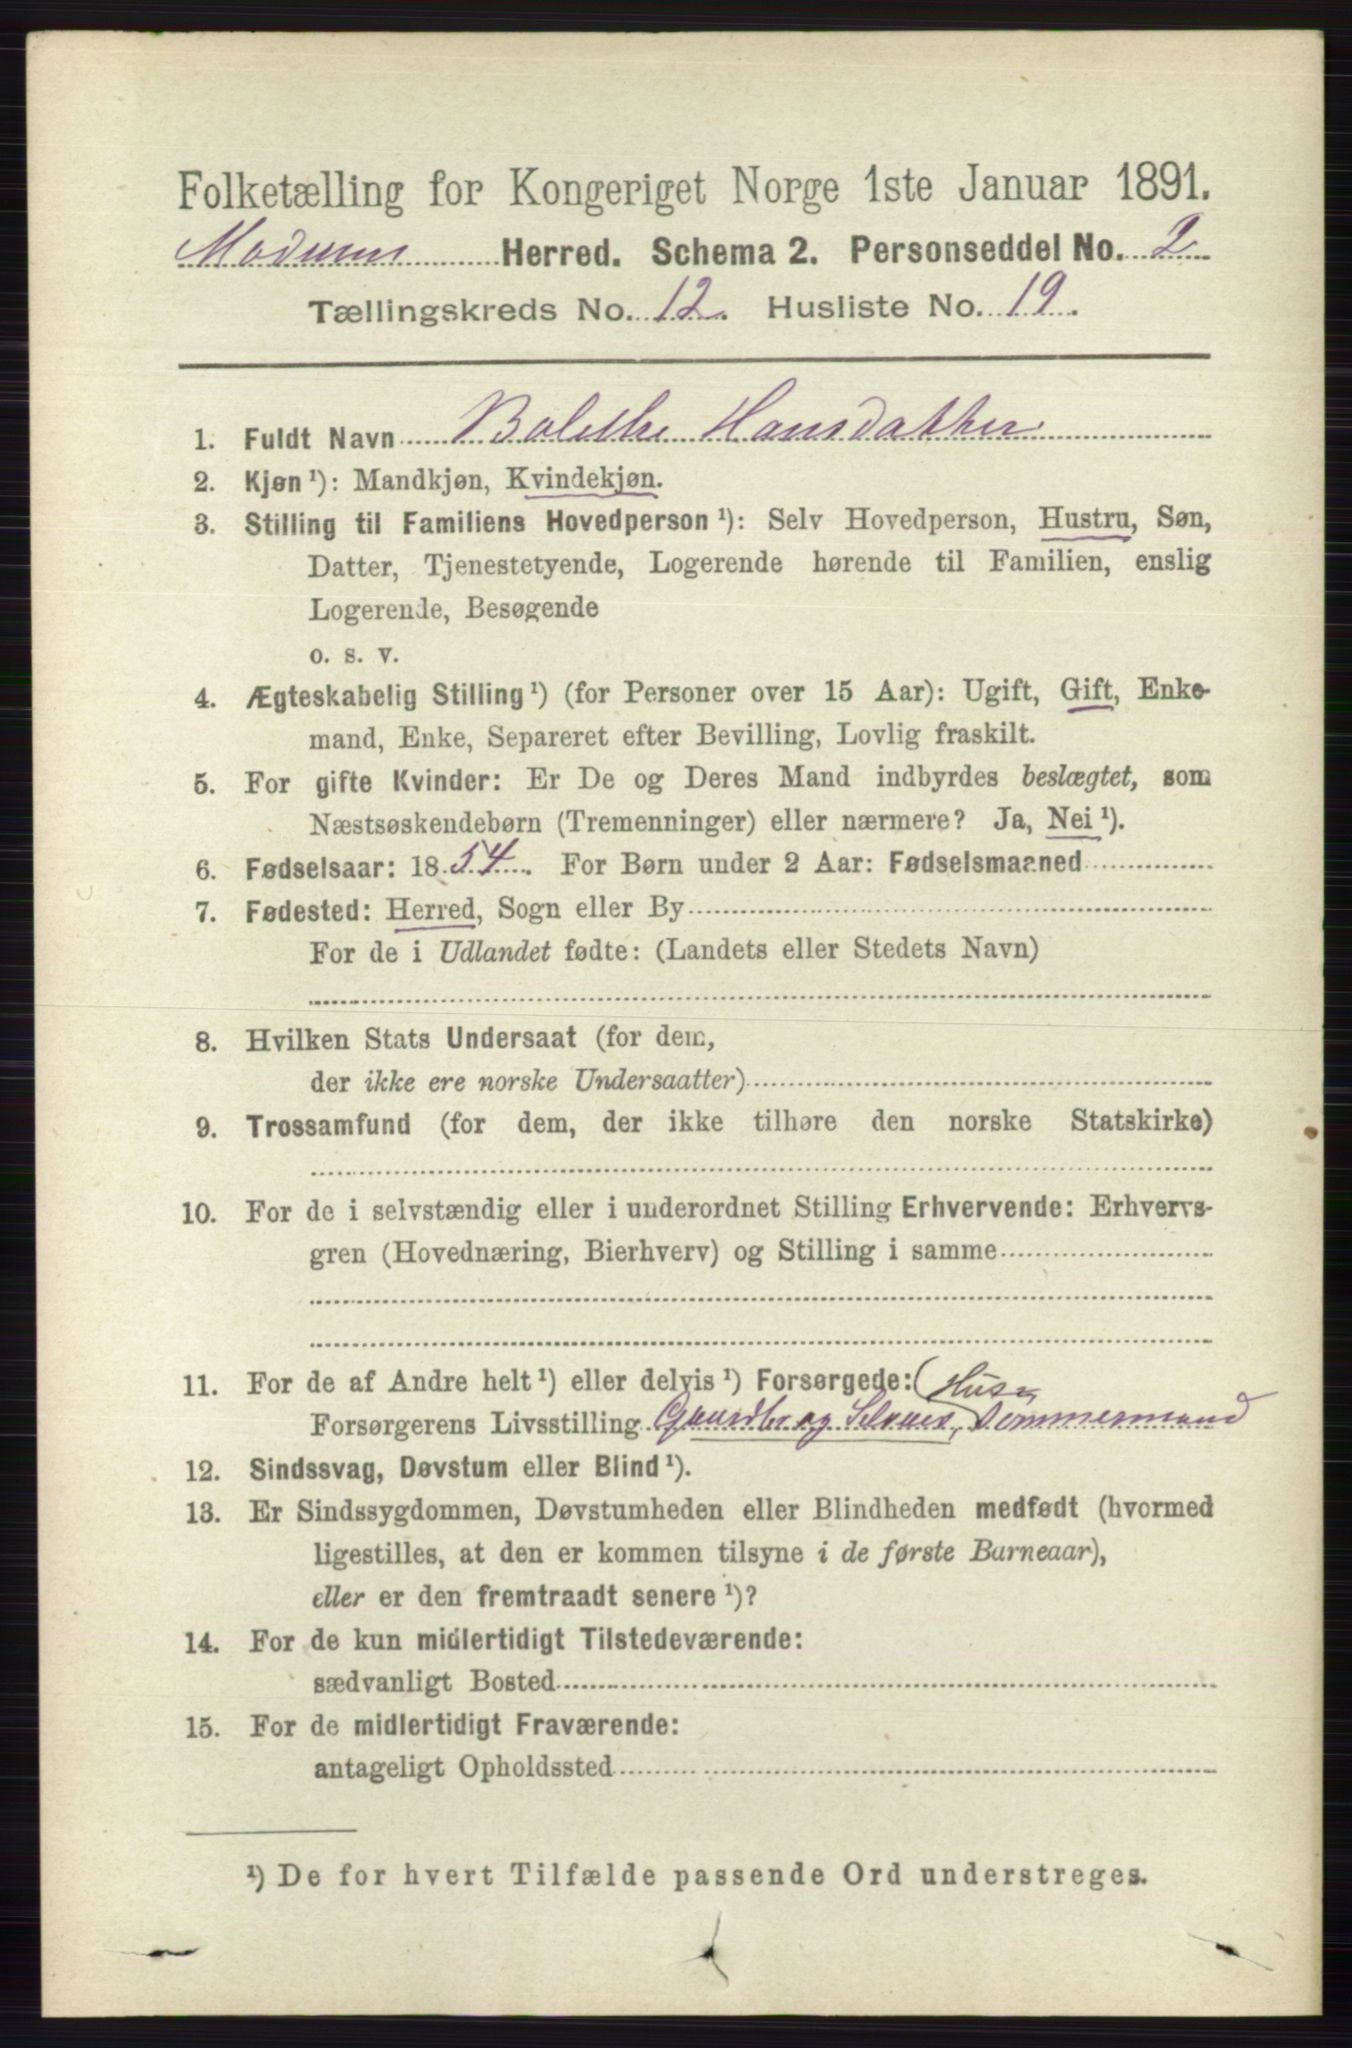 Folketælling for Kongeriget Norge 1ste Januar 1891.
Modums Herred. Schema 2. Personseddel No. 2
Tællingskreds No. 12. Husliste No. 19.
1. Fuldt Navn Bolethe Hansdatter
2. Kjøn ¹): Mandkjøn, Kvindekjøn.
3. Stilling til Familiens Hovedperson ¹): Selv Hovedperson, Hustru, Søn,
Datter, Tjenestetyende, Logerende hørende til Familien, enslig
Logerende, Besøgende
o. s. v.
4. Ægteskabelig Stilling ¹) (for Personer over 15 Aar): Ugift, Gift, Enke-
mand, Enke, Separeret efter Bevilling, Lovlig fraskilt.
5. For gifte Kvinder: Er De og Deres Mand indbyrdes beslægtet, som
Næstsøskendebørn (Tremenninger) eller nærmere? Ja, Nei ¹).
6. Fødselsaar: 1854. For Børn under 2 Aar: Fødselsmaaned
7. Fødested: Herred, Sogn eller By
For de i Udlandet fødte: (Landets eller Stedets Navn)
8. Hvilken Stats Undersaat (for dem,
der ikke ere norske Undersaatter)
9. Trossamfund (for dem, der ikke tilhøre den norske Statskirke)
10. For de i selvstændig eller i underordnet Stilling Erhvervende: Erhvervs-
gren (Hovednæring, Bierhverv) og Stilling i samme
11. For de af Andre helt ¹) eller delvis ¹) Forsørgede: (Hus-
Forsørgerens Livsstilling Gaardbr og Selveier, Tømmermand
12. Sindssvag, Døvstum eller Blind ¹).
13. Er Sindssygdommen, Døvstumheden eller Blindheden medfødt (hvormed
ligestilles, at den er kommen tilsyne i de første Barneaar),
eller er den fremtraadt senere ¹)?
14. For de kun midlertidigt Tilstedeværende:
sædvanligt Bosted
15. For de midlertidigt Fraværende:
antageligt Opholdssted
¹) De for hvert Tilfælde passende Ord understreges.